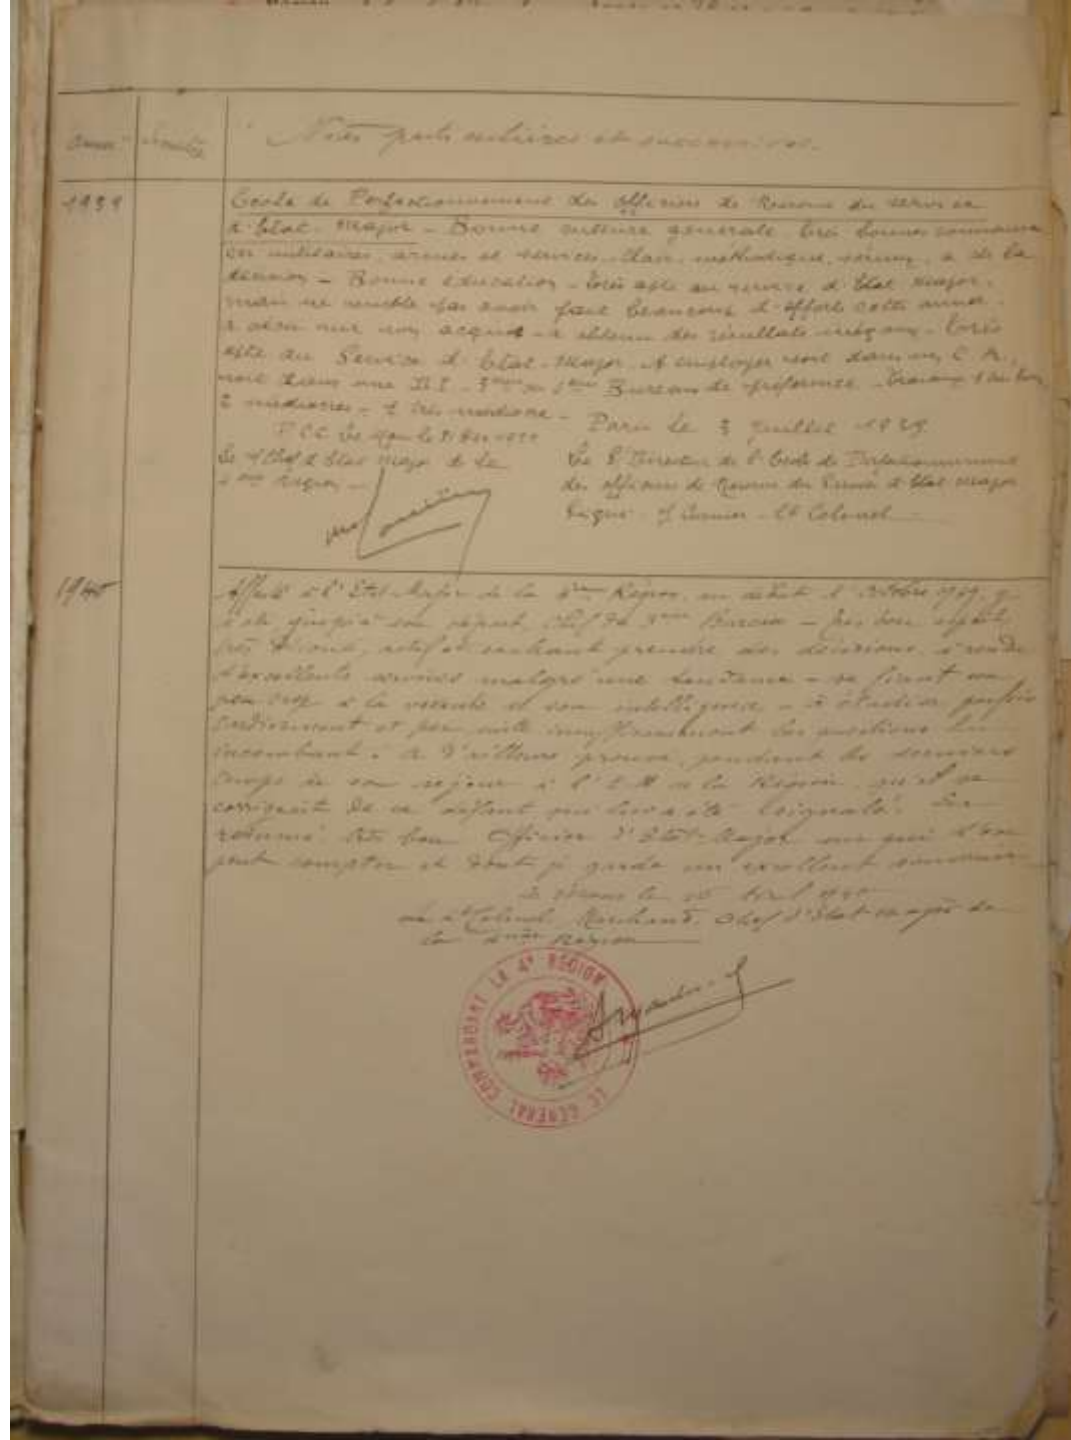 Notes particulières et successives.
1939
École de Perfectionnement des officiers de Réserve du service
d'État-Major - Bonne culture générale très bonnes connaissan
ces militaires, armes et services. Clair, méthodique, sérieux, a de la
décision - Bonne éducation - très apte au service d'État Major.
mais ne semble pas avoir fait beaucoup d'efforts cette année
a vécu sur son acquis - a obtenu des résultats inégaux - très
apte au Service d'État-Major. A employer soit dans un C.A.,
soit dans une D.I. - 3ème ou Bureau de préférence - travaux
2 médiocres - 1 très médiocre - Paris le 3 juillet 1939
P.C.C. Le Mans le
Le Chef d'État Major de la
4ème Région -
Le Directeur de l'École de Perfectionnement
des officiers de Réserve du Service d'État Major
Signé - Lt Colonel
1940
Affecté à l'État-Major de la 4ème Région, au début d'Octobre 1939, y
a été jusqu'à son départ, Chef du 3ème Bureau - Très bon esprit
très actif et sachant prendre des décisions, a rendu
d'excellents services malgré une tendance - se fiant un
peu trop à la et son intelligence - à étudier parfois
hâtivement et par suite insuffisamment les questions lui
incombant. A d'ailleurs prouvé, pendant les derniers
temps de son séjour à l'E.M. de la Région, qu'il se
corrigeait de ce défaut qui lui a été signalé. En
résumé très bon Officier d'État-Major sur qui l'on
peut compter et dont je garde un excellent souvenir
Le Mans le Avril 1940
Le Lt Colonel Chef d'État-major de
la 4ème Région
LE GENERAL COMMANDANT LA 4E REGION